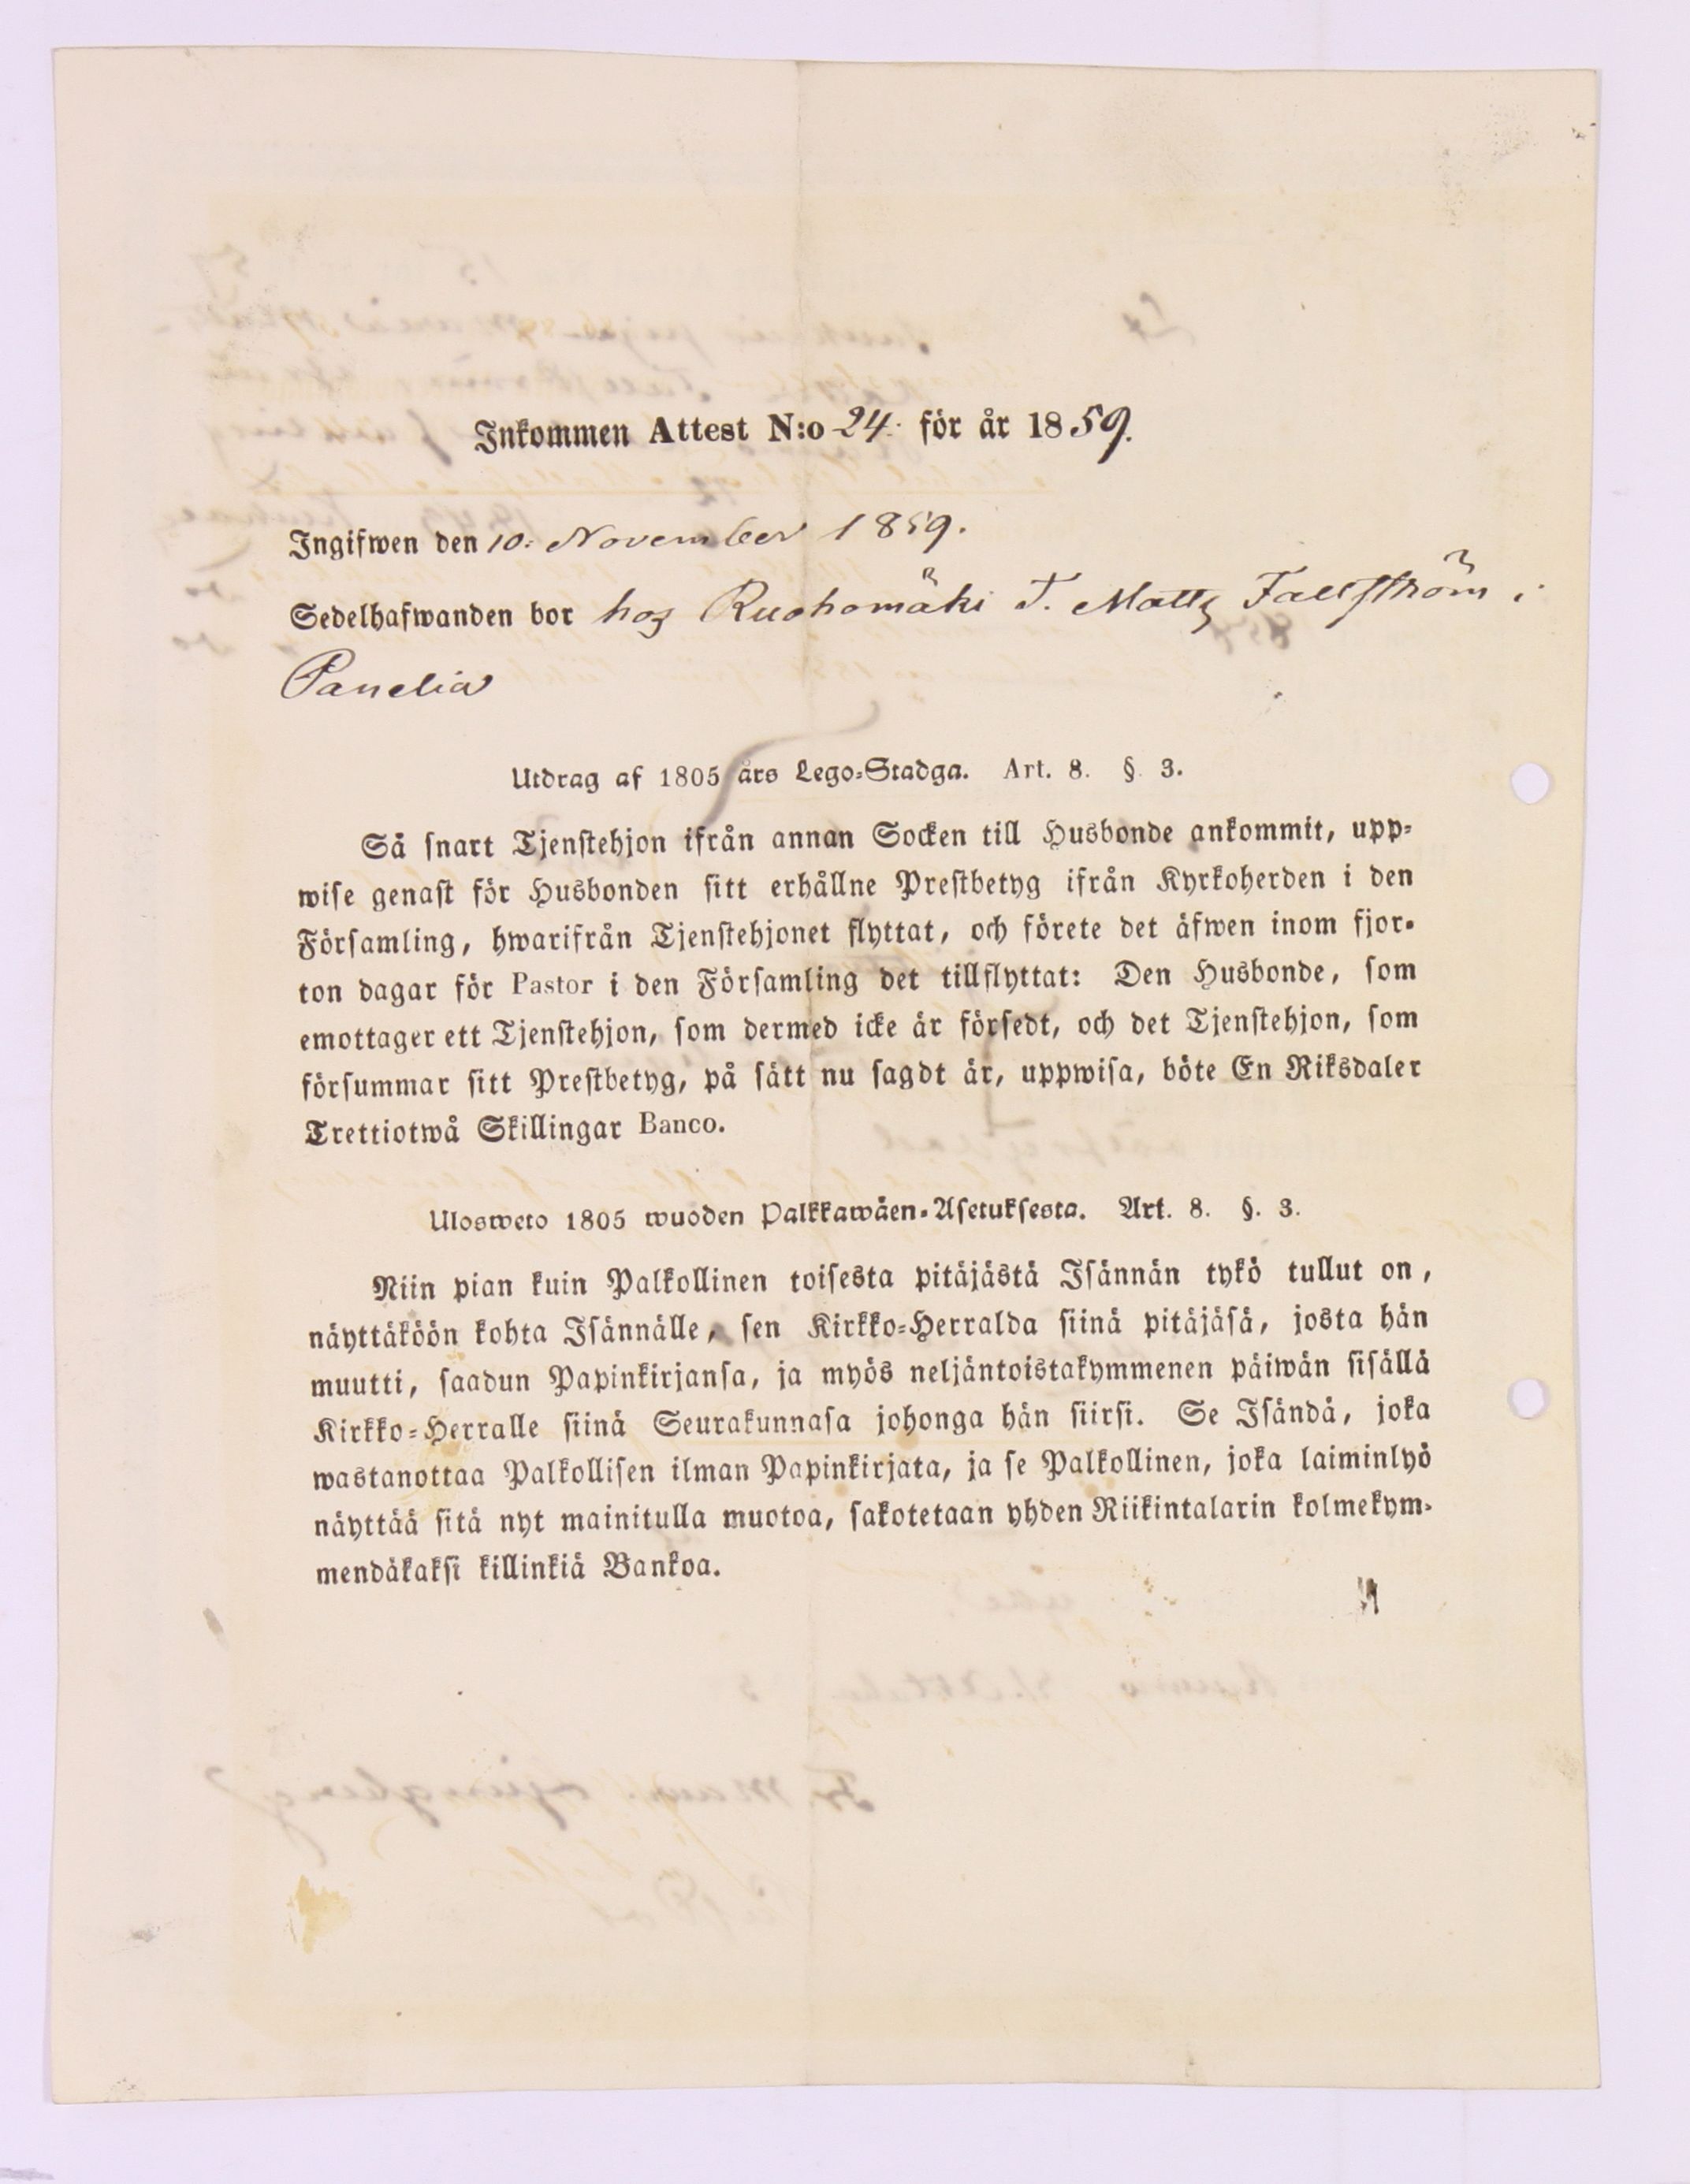 Inkommen Attest N:o 24. för år 1859.
Ingifwen den 10. November 1859.
Sedelhafwanden bor hos Ruohomäki T. Matts Fallström i
Panelia
Utdrag af 1805 års Lego-Stadga. Art. 8. § 3.
Så snart Tjenstehjon ifrån annan Socken till Husbonde ankommit, upp-
wise genast för Husbonden sitt erhållne Prestbetyg ifrån Kyrkoherden i den
Församling, hwarifrån Tjenstehjonet flyttat, och förete det äfwen inom fjor-
ton dagar för Pastor i den Församling det tillflyttat: Den Husbonde, som
emottager ett Tjenstehjon, som dermed icke är försedt, och det Tjenstehjon, som
försummar sitt Prestbetyg, på sätt nu sagdt är, uppwisa, böte En Riksdaler
Trettiotwå Skillingar Banco.
Ulosweto 1805 wuoden Palkkawäen-Asetuksesta. Art. 8. §. 3.
Niin pian kuin Palkollinen toisesta pitäjästä Isännän tykö tullut on,
näyttäköön kohta Isännälle, sen Kirkko-Herralda siinä pitäjäsä, josta hän
muutti, saadun Papinkirjansa, ja myös neljäntoistakymmenen päiwän sisällä
Kirkko-Herralle siinä Seurakunnasa johonga hän siirsi. Se Isändä, joka
wastanottaa Palkollisen ilman Papinkirjata, ja se Palkollinen, joka laiminlyö
näyttää sitä nyt mainitulla muotoa, sakotetaan yhden Riikintalarin kolmekym-
mendäkaksi killinkiä Bankoa.